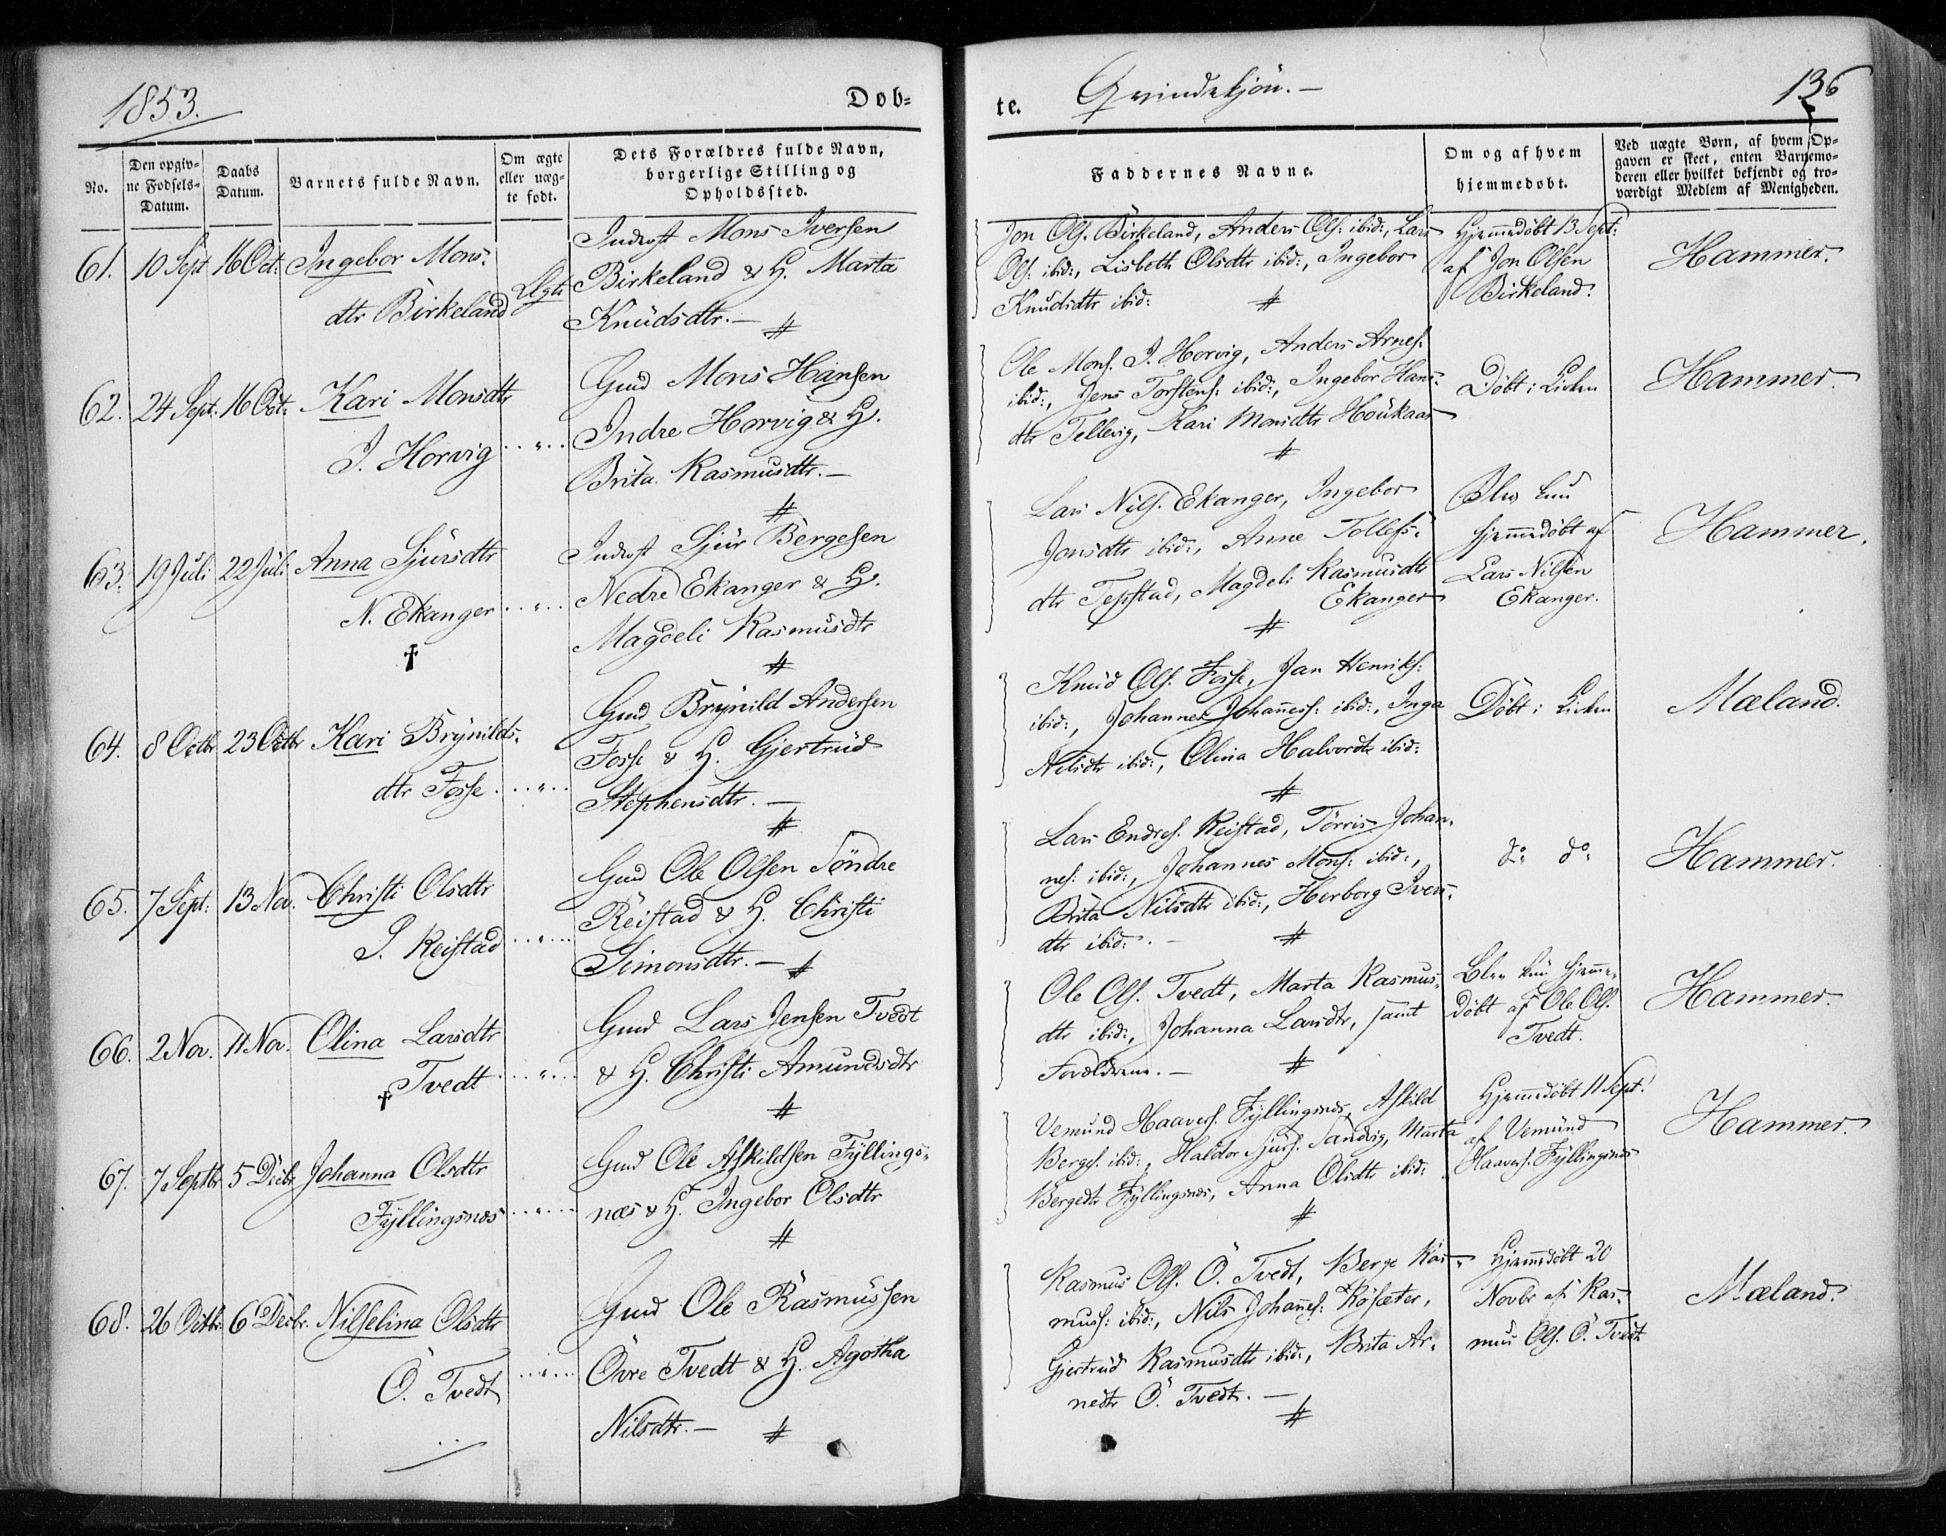 1853.
Dob-
te.
Qvindekjön. -
136
No.
Den opgiv-
ne Fodsels-
Datum.
Daabs
Datum.
Barnets fulde Navn.
Om ægte
eller uæg-
te fodt.
Dets Forældres fulde Navn,
borgerlige Stilling og
Opholdssted.
Faddernes Navne.
Om og af hvem
hjemmedobt.
Ved uægte Born, af hvem Op-
gaven er skeet, enten Barnemo-
deren eller hvilket bekjendt og tro-
værdigt Medlem af Menigheden.
61. 10 Sept 16 Oct: Ingebor Mons-
dtr Birkeland
Ægte
Inderst Mons Iversen
Birkeland & H. Marta
Knudsdtr. -
Jon Ols. Birkeland, Anders Ols: ibid:, Lars
Ols: ibid:, Lisbeth Olsdtr ibid:, Ingebor
Knudsdtr ibid:
Hjemmedöbt 13 Sept:
af Jon Olsen
Birkeland.
Hammer.
62. 24 Sept: 16 Oct: Kari Monsdtr
I. Horvig
Gmd Mons Hansen
Indre Horvig & H.
Brita Rasmusdtr. -
Ole Mons. I. Horvig, Anders Arnes:
ibid:, Jens Torstens: ibid:, Ingebor Hans-
dtr Tellevig, Kari Monsdtr Houkaas
Döbt i Kirken
Hammer.
63. 19 Juli 22 Juli Anna Sjursdtr
N. Ekanger
†
Inderst Sjur Bergesen
Nedre Ekanger & H.
Magdeli Rasmusdtr
Lars Nils. Ekanger, Ingebor
Jonsdtr ibid:, Anne Tollefs-
dtr Tepstad, Magdeli Rasmusdtr
Ekanger
Blev kun
hjemmedöbt af
Lars Nilsen
Ekanger.
Hammer.
64. 8 Octbr 23 Octbr Kari Brynilds-
dtr Fosse
Gmd Brynild Andersen
Fosse & H. Gjertrud
Stephensdtr. -
Knud Ols. Fosse, Jan Henriks:
ibid:, Johannes Johanness: ibid:, Inga
Nilsdtr ibid:, Olina Halvordtr ibid:
Döbt i Kirken
Mæland.
65. 7 Sept: 13 Nov. Christi Olsdtr
S. Reistad
Gmd Ole Olsen Söndre
Reistad & H. Christi
Simonsdtr. -
Lars Endres. Reistad, Törris Johan-
nes: ibid:, Johannes Mons: ibid:,
Brita Nilsdtr ibid:, Herborg Ivers-
dtr ibid: -
do do
Hammer.
66. 2 Nov. 11 Nov. Olina Larsdtr
Tvedt
†
Gmd Lars Jensen Tvedt
& H. Christi Amundsdtr
Ole Ols. Tvedt, Marta Rasmus-
dtr ibid:, Johanna Larsdtr, samt
Forældrene. -
Blev kun hjemme-
döbt af Ole Ols.
Tvedt.
Hammer.
67. 7 Septbr 5 Decbr Johanna Olsdtr
Fyllingsnæs
Gmd Ole Askildsen Fyllings-
næs & H. Ingebor Olsdtr
Vemund Haavers. Fyllingsnæs, Askild
Berges. ibid:, Haldor Sjurs. Sandvig, Marta
Bergedtr Fyllingsnæs, Anna Olsdtr ibid:
Hjemmedöbt 11 Sept:
af Vemund
Haavers. Fyllingsnæs
Hammer.
68. 26 Octbr. 6 Decbr. Nilselina Olsdtr
Ö. Tvedt
Gmd Ole Rasmussen
Övre Tvedt & H. Agotha
Nilsdtr. -
Rasmus Ols. Ö. Tvedt, Berge Ras-
muss: ibid:, Nils Johannes: Röseter,
Gjertrud Rasmusdtr ibid:, Brita Ar-
nedtr Ö. Tvedt. -
Hjemmedöbt 20
Novbr af Ras-
mus Ols. Ö. Tvedt
Mæland.